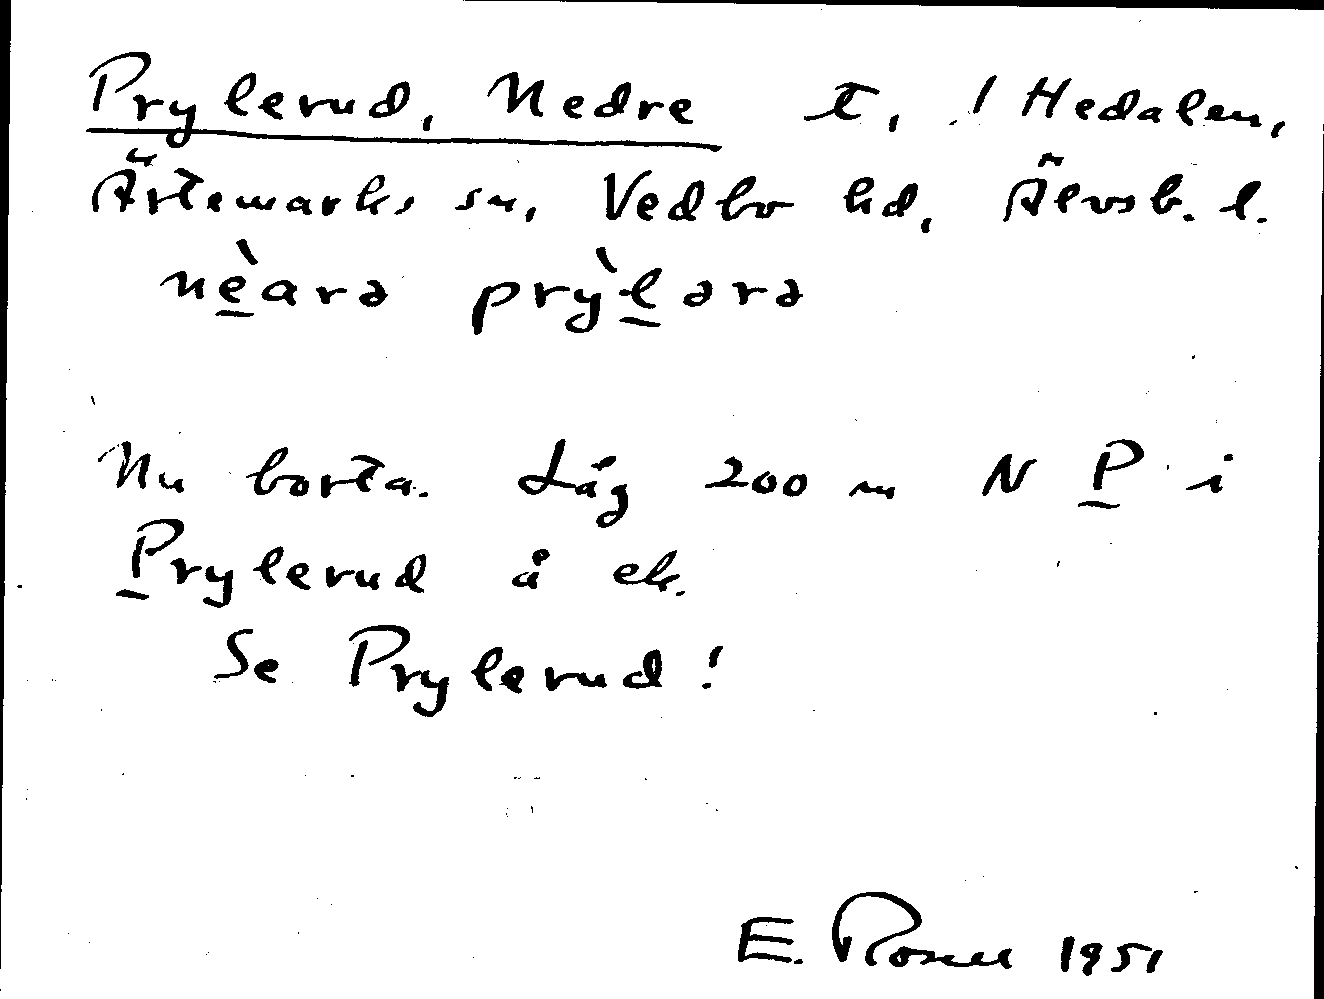 Prylerud, Nedre t, ! Hedalen,
Ärtemarks sn, Vedbo hd, Älvsb. l.
nèarə prỳlərə
Nu borta. Låg 200 m N P i
Prylerud å ek.
Se Prylerud!
E. Rosell 1951